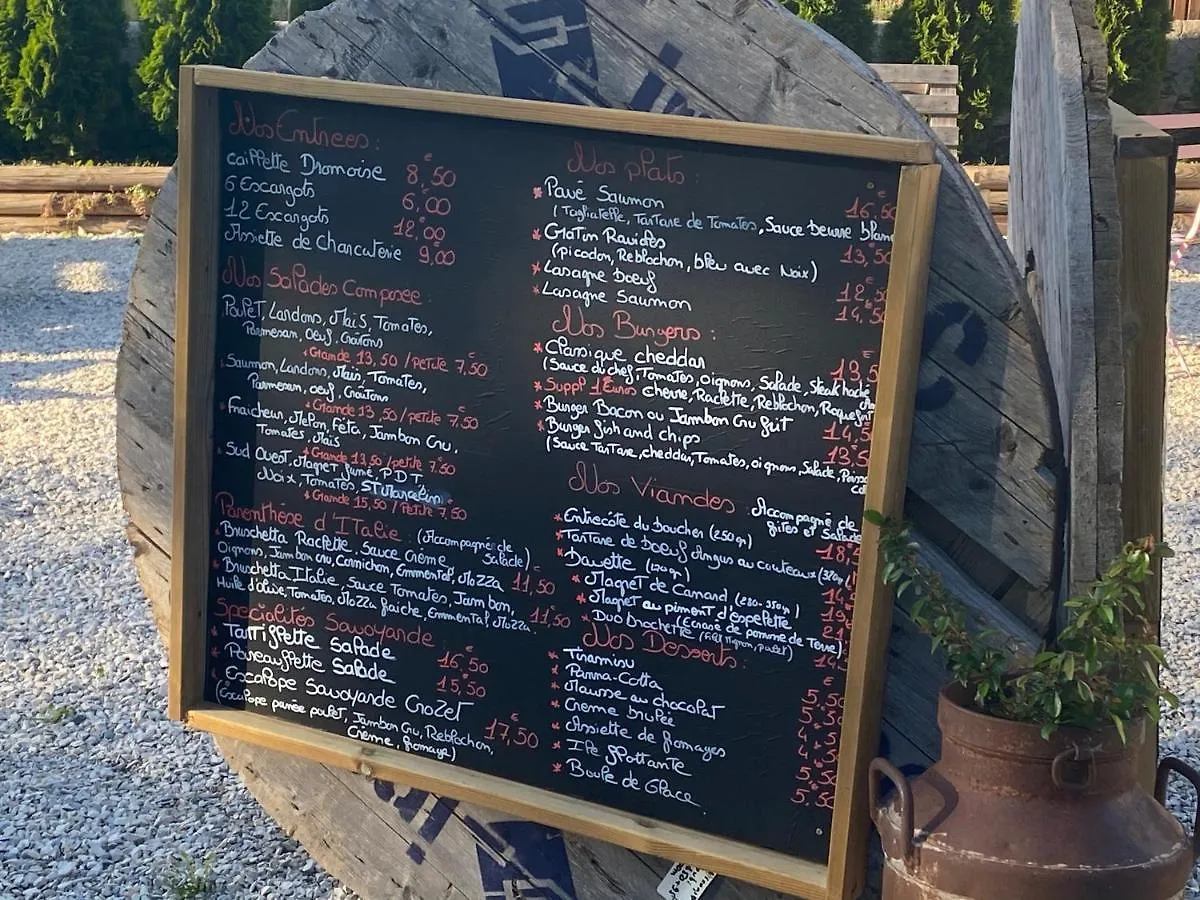 Nos Entrees :
caillette Dromoise 8,50€
6 Escargots 6,00
12 Escargots 12,00
Assiette de Charcuterie 9,00
Nos Salades Composee :
Poulet, Lardons, Maïs, Tomates,
Parmesan, Oeuf, Croûtons
Grande 13,50 / petite 7,50
Saumon, Lardons, Maïs, Tomates,
Parmesan, oeuf, Croûtons
Grande 13,50 / petite 7,50
Fraicheur, Melon, Feta, Jambon Cru,
Tomates, Maïs
Grande 13,50 / petite 7,50
Sud Ouest, Magret fumé, P.D.T,
Noix, Tomates, ST Marcellin
Grande 15,50 / Petite 7,50
Parenthèse d'ITalie : (Accompagnée de
Salade)
Bruschetta Raclette, Sauce Crème
Oignons, Jambon cru, Cornichon, Emmental, Mozza 11,50€
Bruschetta Italie, Sauce Tomates, Jambon,
Huile d'Olive, Tomates, Mozza fraiche, Emmental, Mozza. 11,50€
Specialités Savoyarde
Tartiflette Salade 16,50€
Poireauflette Salade 15,50€
Escalope Savoyarde CrozeT 17,50€
(Escalope panée poulet, Jambon Cru, Reblochon,
Crème, fromage)
Nos plats :
Pavé Saumon 16,50
(Tagliatelle, Tartare de Tomates, Sauce beurre blanc
Gratin Ravioles 13,50
(picodon, Reblochon, bleu avec Noix)
Lasagne boeuf 12,50
Lasagne Saumon 14,50
Nos Burgers :
Classique cheddar 13,5
(Sauce du chef, Tomates, oignons, Salade, Steak haché
Suppl 1 Euros chevre, Raclette, Reblochon, Roquefort
Burger Bacon ou Jambon Cru frit 14,5
Burger fish and chips 13,5
(Sauce Tartare, cheddar, Tomates, oignons, Salade,
Nos Viandes : Accompagné de
frites et Salade
Entrecôte du boucher (250gr)
Tartare de boeuf Angus au couteaux
Bavette
Magret de Canard
Magret au piment d'espelette
(Ecrasé de pomme de Terre)
Duo brochette (filet mignon, poulet)
Nos Desserts :
Tiramisu 5,50
Panna-Cotta
Mousse au chocolat
Crème Brulée
Assiette de fromages
Ile flottante
Boule de Glace